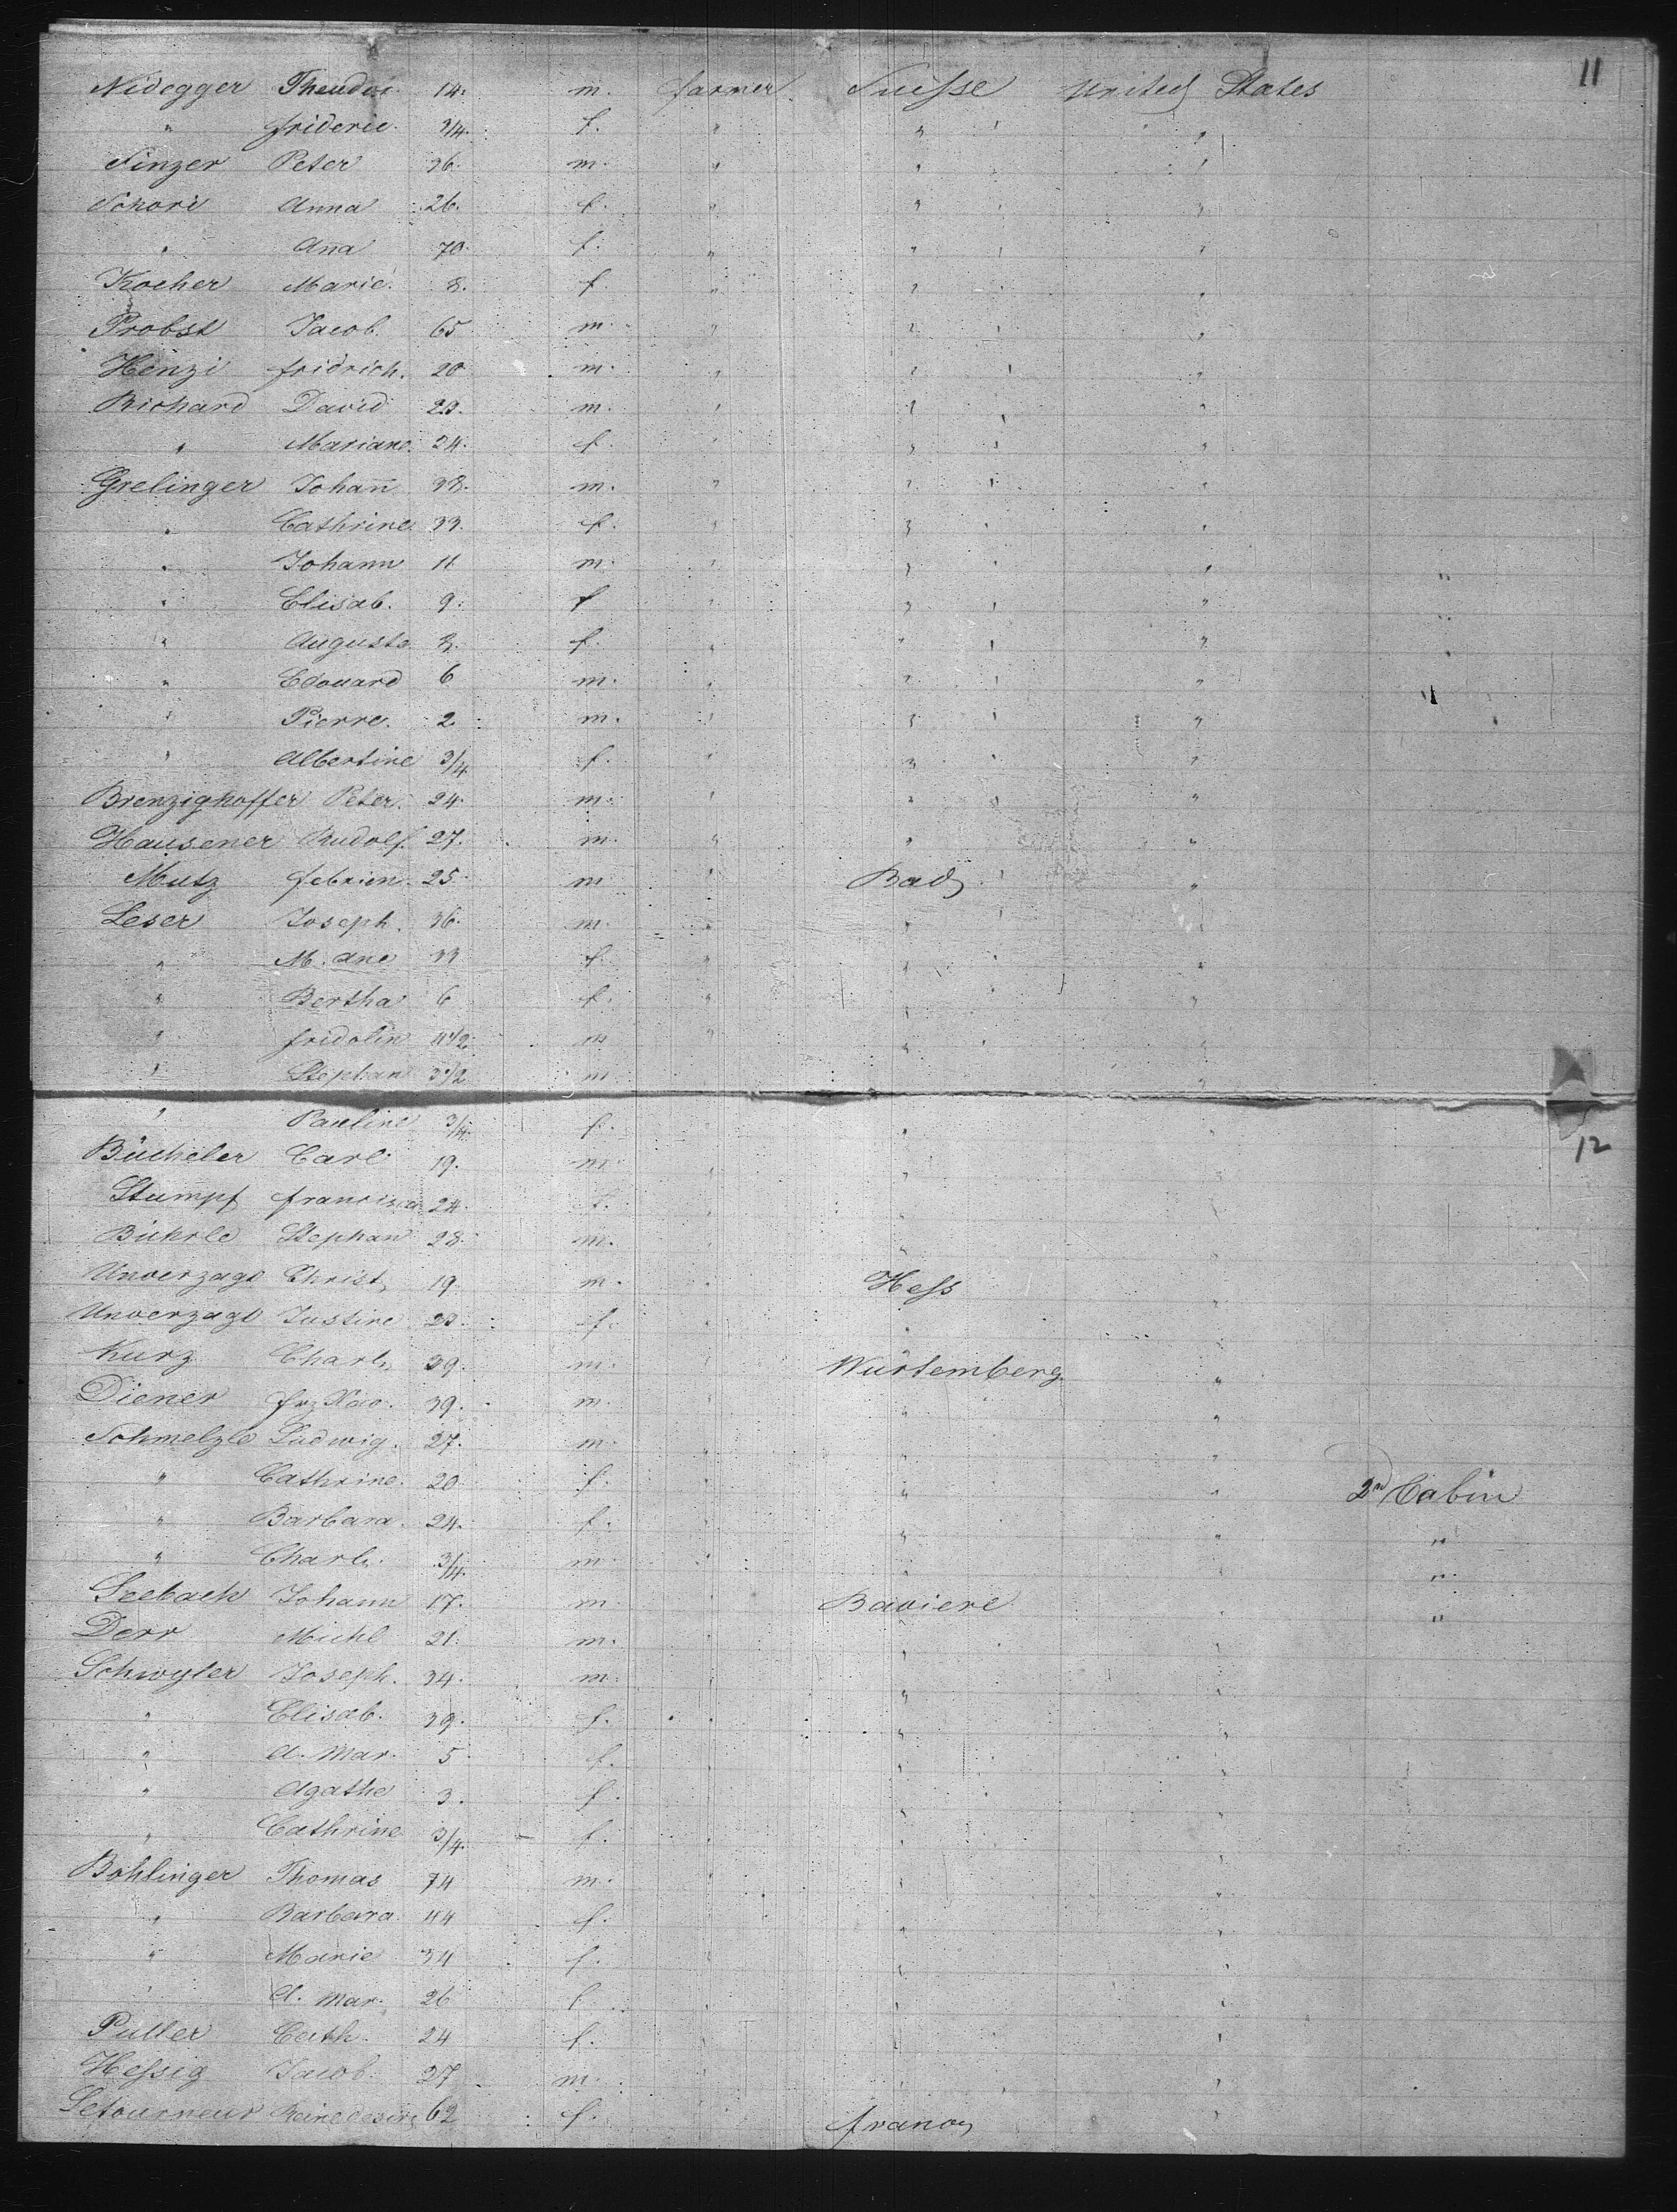 11
Nidegger Theudor 14. m. farmer Suisse United States
" friderie. 3/4. f. " " "
Sinzer Peter 36. m. " " "
Schori Anna 26. f. " " "
" Ana 70. f. " " "
Kocher Marie. 8. f. " " "
Probst Jacob. 65 m. " " "
Henzi fridrich. 20 m. " " "
Richard David 23. m. " " "
" Mariane. 24. f. " " "
Grelinger Johan̄ 38. m. " " "
" Cathrine. 33. f. " " "
" Johann 11 m. " " " "
" Elisab. 9. f " " " "
" Augusta 8. f. " " " "
" Edouard 6 m. " " " "
" Pierre. 2 m. " " " "
" Albertine 3/4 f. " " "
Brenzighoffer Peter. 24. m. " " "
Hausener Rudolf. 27. m. " " "
Mutz febrien. 25 m " Bad "
Leser Joseph. 36. m. " " "
" M. Ane 33 f. " " "
" Bertha 6 f. " " "
" fridolin 4 1/2 m " " "
" Stephan 3 1/2 m " "
" Pauline 3/4 f. " "
12
Bücheler Carl 19. m. " " "
Stumpf francisca 24. f. " "
Bührle Stephan 28. m. " " "
Unverzagt Christ. 19. m. " Hess "
Unverzagt Justine 23. f. " "
Kurz Charls 39. m. " Würtemberg "
Diener frz Xav. 39. m. " " "
Schmelzle Ludwig. 27. m. " " "
" Cathrine. 20 f. " " 2nd Cabin
" Barbara. 24. f. " " "
" Charls. 3/4. m. " " " "
Seebach Johann 17. m. " Baviere " "
Derr Michl 21. m. " " "
Schwyler Joseph. 34. m. " " "
" Elisab. 39. f. " " "
" A. Mar. 5 f. " " "
" Agathe 3. f. " " "
" Cathrine 3/4. f. " " "
Bohlinger Thomas 74 m. " " "
" Barbara. 44 f. " " "
" Marie 34 f. " " "
" A. Mar. 26 f. " " "
Puller Cath. 24 f. " " "
Hessig Jacob. 27 m. " " "
Letourneur Reine desire 62 f. france "